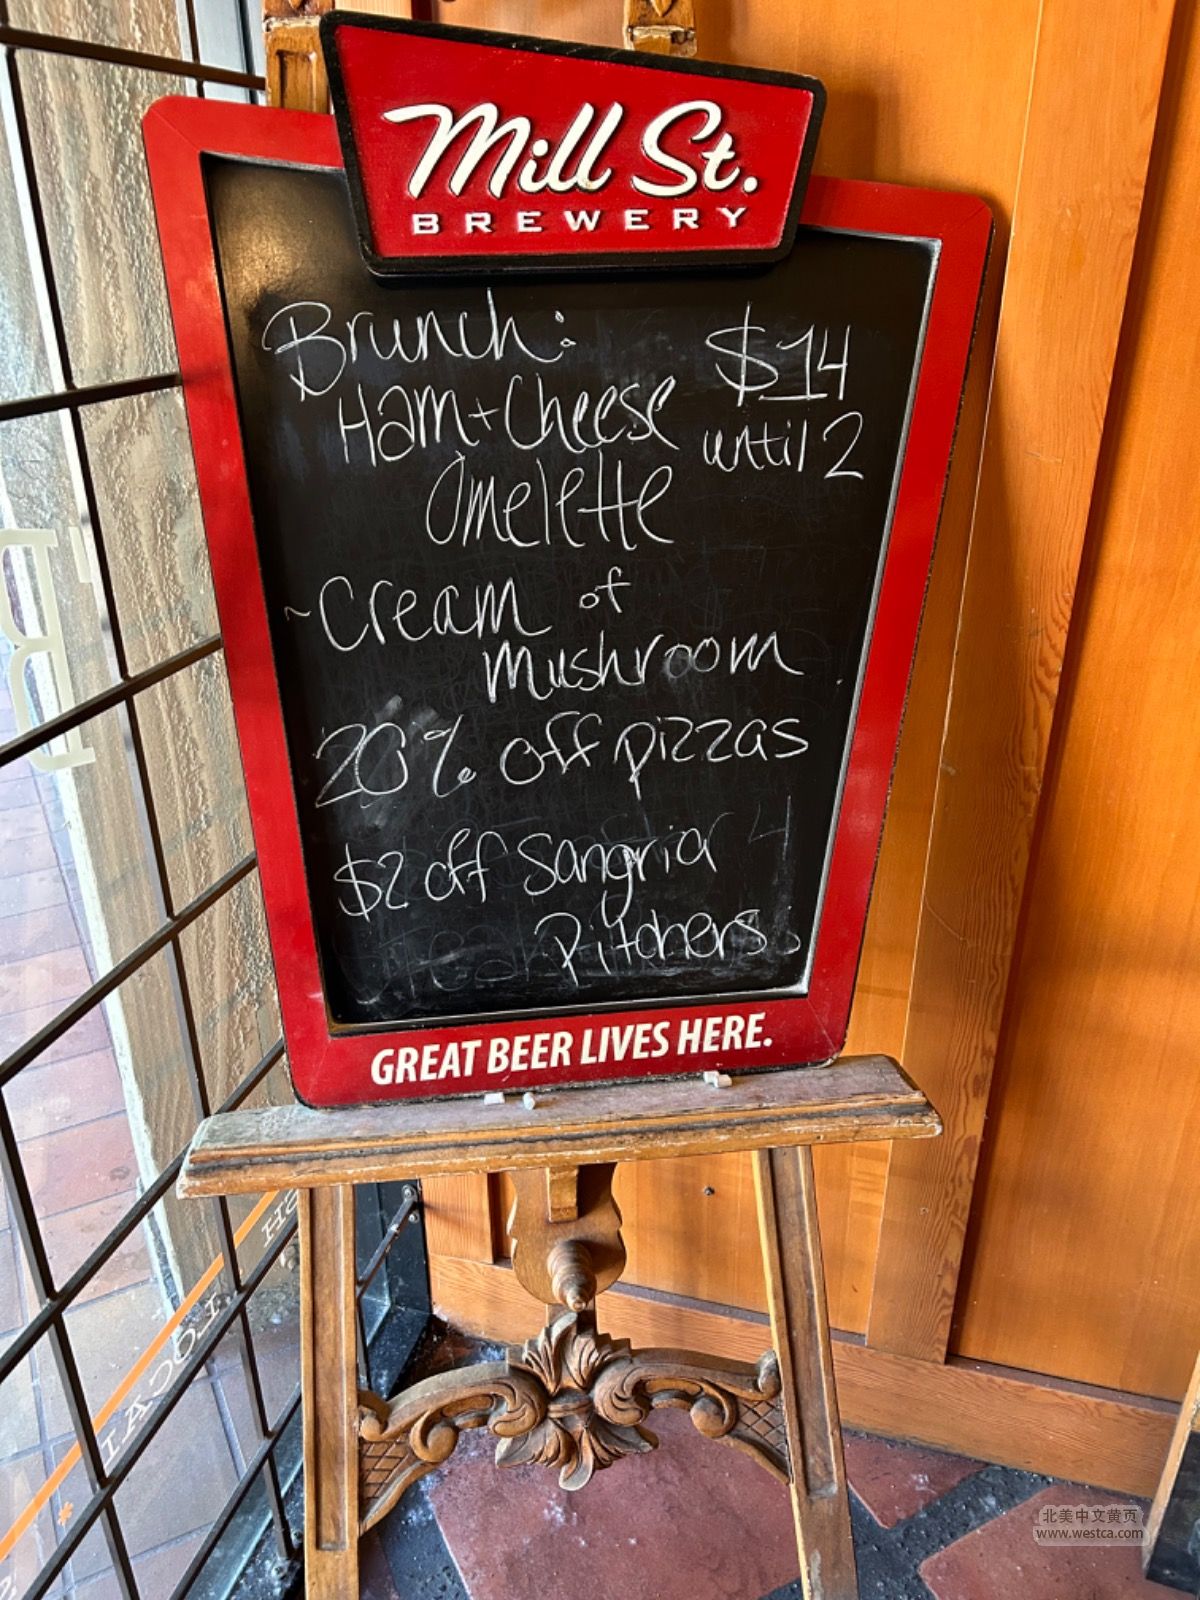 Mill St.
BREWERY
Brunch: $14
Ham + Cheese until 2
Omelette
~ Cream of
Mushroom
20% off pizzas
$2 off Sangria
Pitchers
GREAT BEER LIVES HERE.
LOCAL
北美中文黄页
www.westca.com